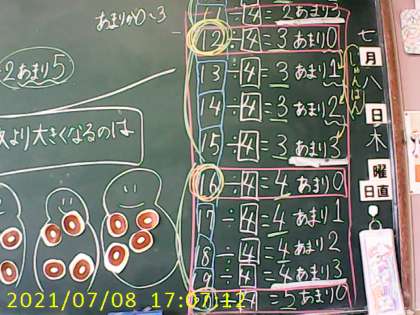 あまりが0〜3
2あまり5
より大きくなるのは
÷4=2あまり3
12÷4=3あまり0
13÷4=3あまり1
14÷4=3あまり2
15÷4=3あまり3
16÷4=4あまり0
17÷4=4あまり1
18÷4=4あまり2
19÷4=4あまり3
20÷4=5あまり0
じゅんばん
七月八日木曜
日直
2021/07/08 17:07:12